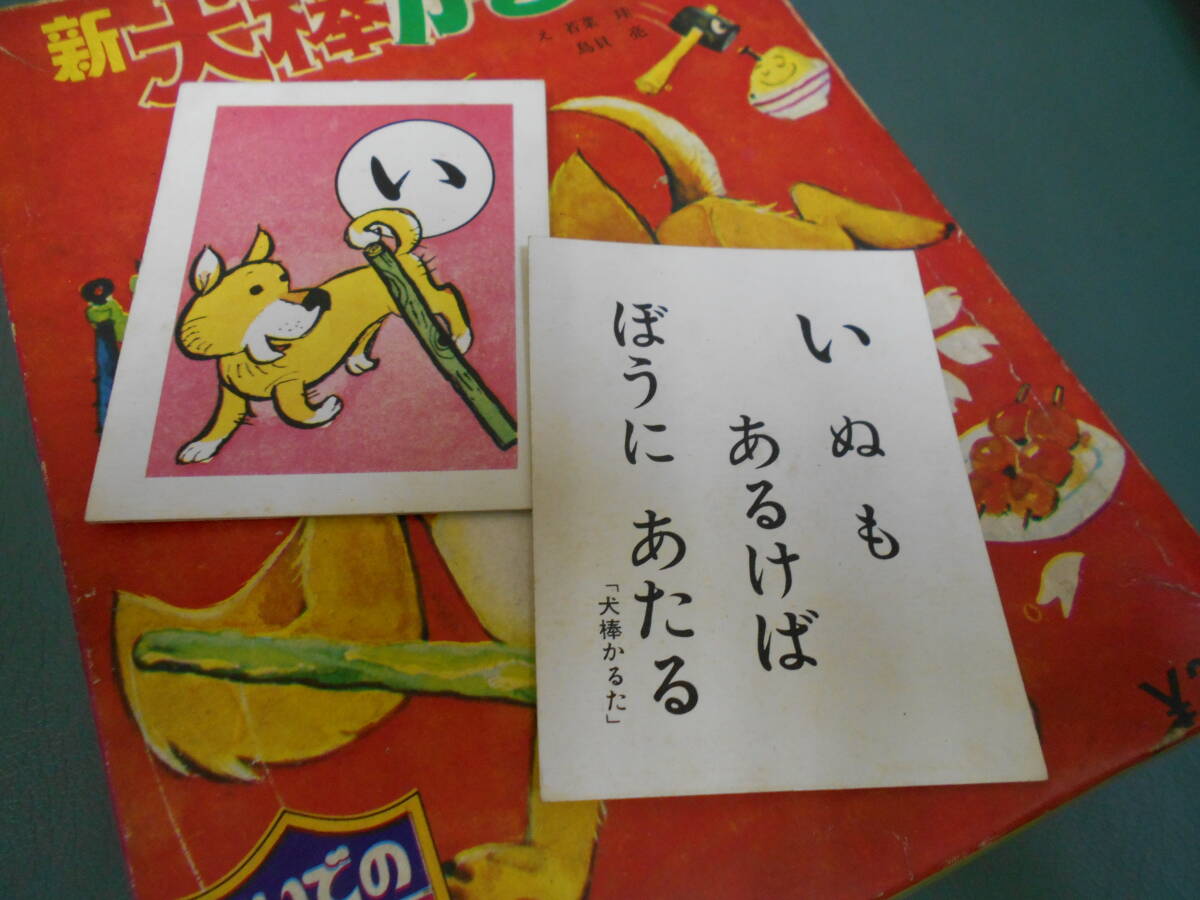 新犬棒か
え 若菜 珪
鳥貝 亮
い
いぬも
あるけば
ぼうに あたる
「犬棒かるた」
いでの